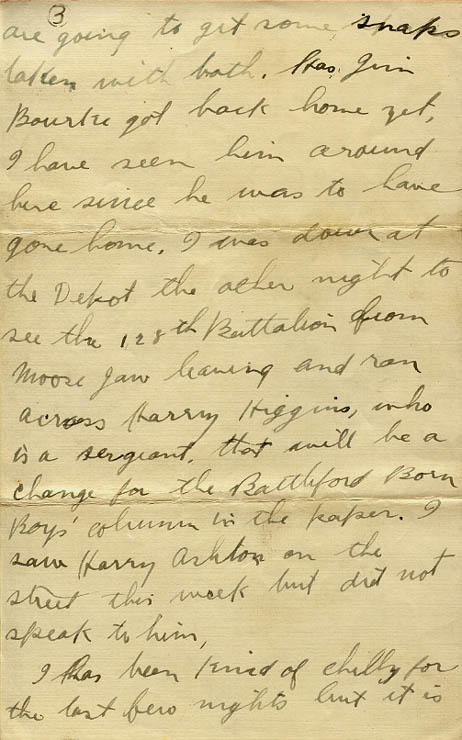 3
are going to get some snaps
taken with both. Has Jim
Bourke got back home yet,
I have seen him around
here since he was to have
gone home. I was down at
the Depot the other night to
see the 128th Battalion from
Moose Jaw leaving and ran
across Harry Higgins, who
is a sergeant, that will be a
change for the Battleford Born
Boys' column in the paper. I
saw Harry Ashton on the
street this week but did not
speak to him,
I has been kind of chilly for
the last few nights but it is